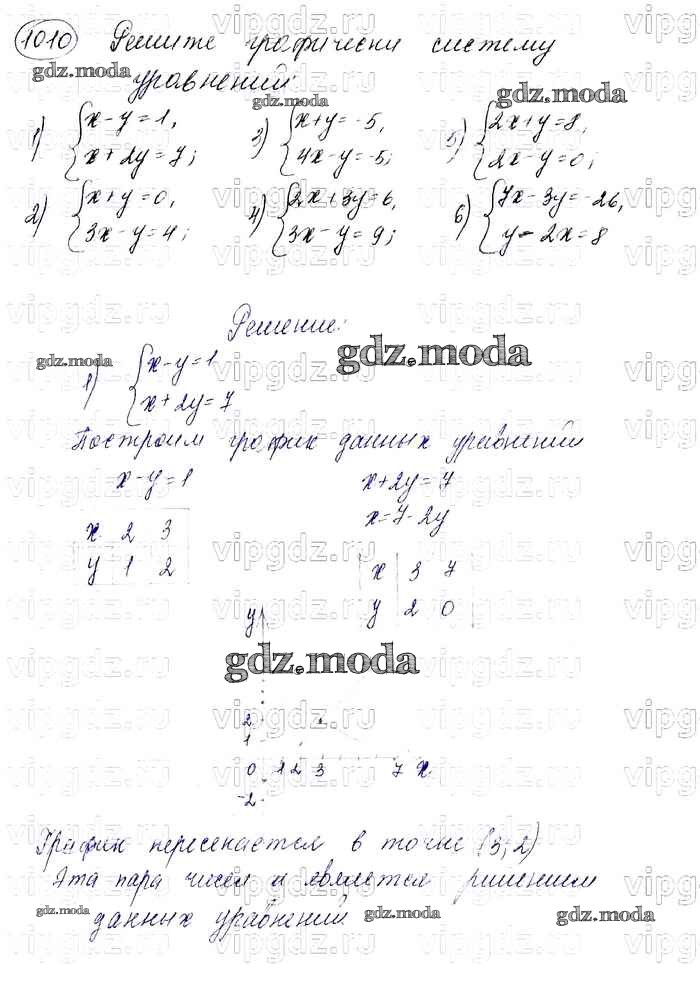 1010 Решите графически систему
уравнений:
1) { x - y = 1, x + 2y = 7;
3) { x + y = -5, 4x - y = -5;
5) { 2x + y = 8, 2x - y = 0;
2) { x + y = 0, 3x - y = 4;
4) { 2x + 3y = 6, 3x - y = 9;
6) { 7x - 3y = -26, y - 2x = 8
Решение:
1) { x - y = 1
x + 2y = 7
Построим график данных уравнений
x - y = 1
x 2 3
y 1 2
x + 2y = 7
x = 7 - 2y
x 3 7
y 2 0
y
2
1
0 1 2 3 7 x
-2
График пересекается в точке (3; 2)
Эта пара чисел и является ришением
данных уравнений
gdz.moda
vipgdz.ru